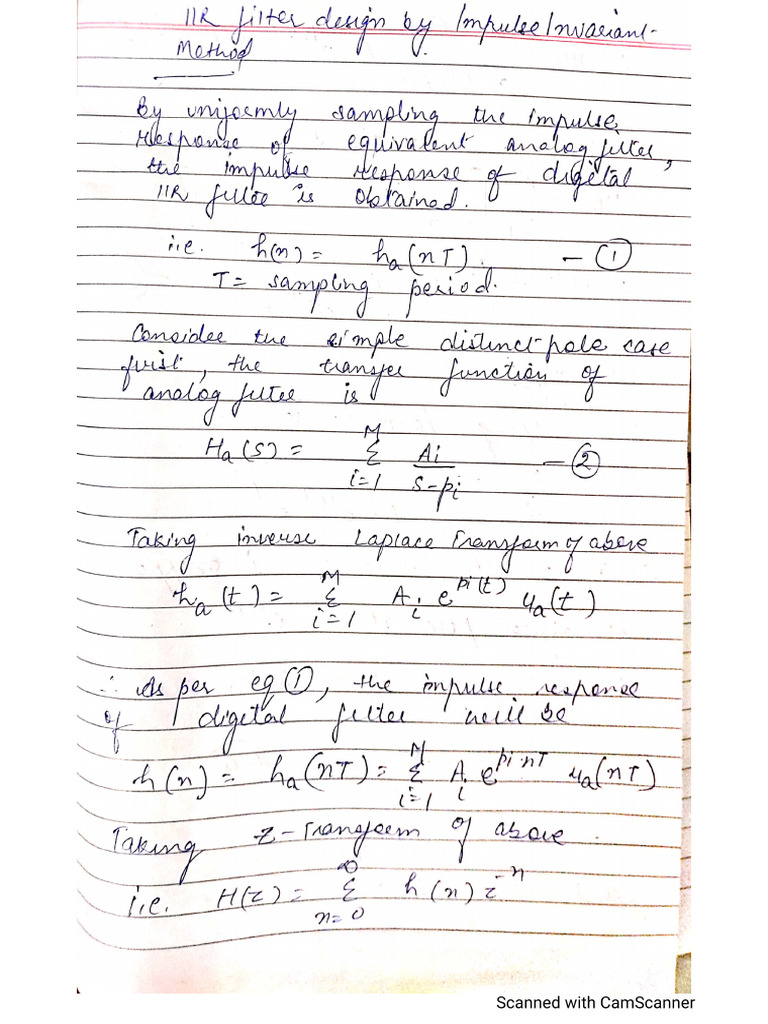 IIR filter design by Impulse Invariant-
Method
By uniformly sampling the impulse
response of equivalent analog filter,
the impulse response of digital
IIR filter is obtained.
i.e. h(n) = ha(nT). — ①
T = sampling period.
Consider the simple distinct-pole case
first, the transfer function of
analog filter is
Ha(s) = M Σ i=1 Ai / s-pi — ②
Taking inverse Laplace Transform of above
ha(t) = M Σ i=1 Ai e^pi(t) ua(t)
∴ As per eq ①, the impulse response
of digital filter will be
h(n) = ha(nT) = M Σ i=1 Ai e^pi nT ua(nT)
Taking z-Transform of above.
i.e. H(z) = ∞ Σ n=0 h(n) z^-n
Scanned with CamScanner